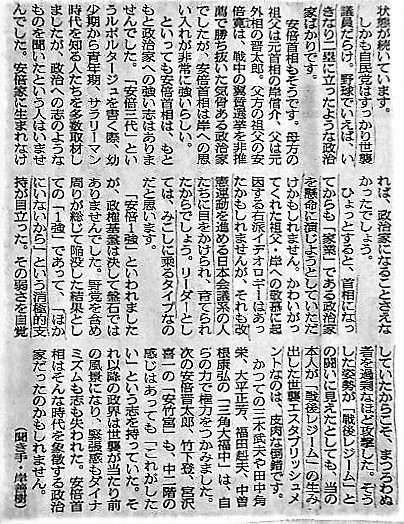 状態が続いています。
しかも自民党はすっかり世襲
議員だらけ。野球でいえば、い
きなり二塁に立ったような政治
家ばかりです。
安倍首相もそうです。母方の
祖父は元首相の岸信介、父は元
外相の晋太郎。父方の祖父の安
倍寛は、戦中の翼賛選挙を非推
薦で勝ち抜いた気骨ある政治家
でしたが、安倍首相は岸への思
い入れが非常に強いらしい。
といっても安倍首相は、もと
もと政治家への強い志はありま
せんでした。「安倍三代」とい
うルポルタージュを書く際、幼
少期から青年期、サラリーマン
時代を知る人たちを多数取材し
ましたが、政治への志のような
ものを聞いたという人はいませ
んでした。安倍家に生まれなけ
れば、政治家になることさえな
かったでしょう。
ひょっとすると、首相になっ
てからも「家業」である政治家
を懸命に演じようとしていただ
けかもしれません。かわいがっ
てくれた祖父・岸への敬慕に起
因する右派イデオロギーはあっ
たかもしれませんが、それも改
憲運動を進める日本会議系の人
たちに目をかけられ、育てられ
たからでしょう。リーダーとし
ては、みこしに乗るタイプなの
だと思います。
「安倍1強」といわれました
が、政権基盤は決して盤石では
ありませんでした。野党を含め
周りが総じて陥没した結果とし
ての「1強」であって、「ほか
にいないから」という消極的支
持が目立った。その弱さを自覚
していたからこそ、まつろわぬ
者を過剰なほど攻撃した。そう
した姿勢が「戦後レジーム」と
の闘いに見えたとしても、当の
本人が「戦後レジーム」の生み
出した世襲エスタブリッシュメ
ントなのは、皮肉な倒錯です。
かつての三木武夫や田中角
栄、大平正芳、福田赳夫、中曽
根康弘の「三角大福中」は、自
らの力で権力をつかみました。
次の安倍晋太郎、竹下登、宮沢
喜一の「安竹宮」も、中二階の
感じはあっても「これがした
い」という志を持っていた。そ
れ以降の政界は世襲が当たり前
の風景になり、緊張感もダイナ
ミズムも失われた。安倍首
相はそんな時代を象徴する政治
家だったのかもしれません。
（聞き手・岸善樹）